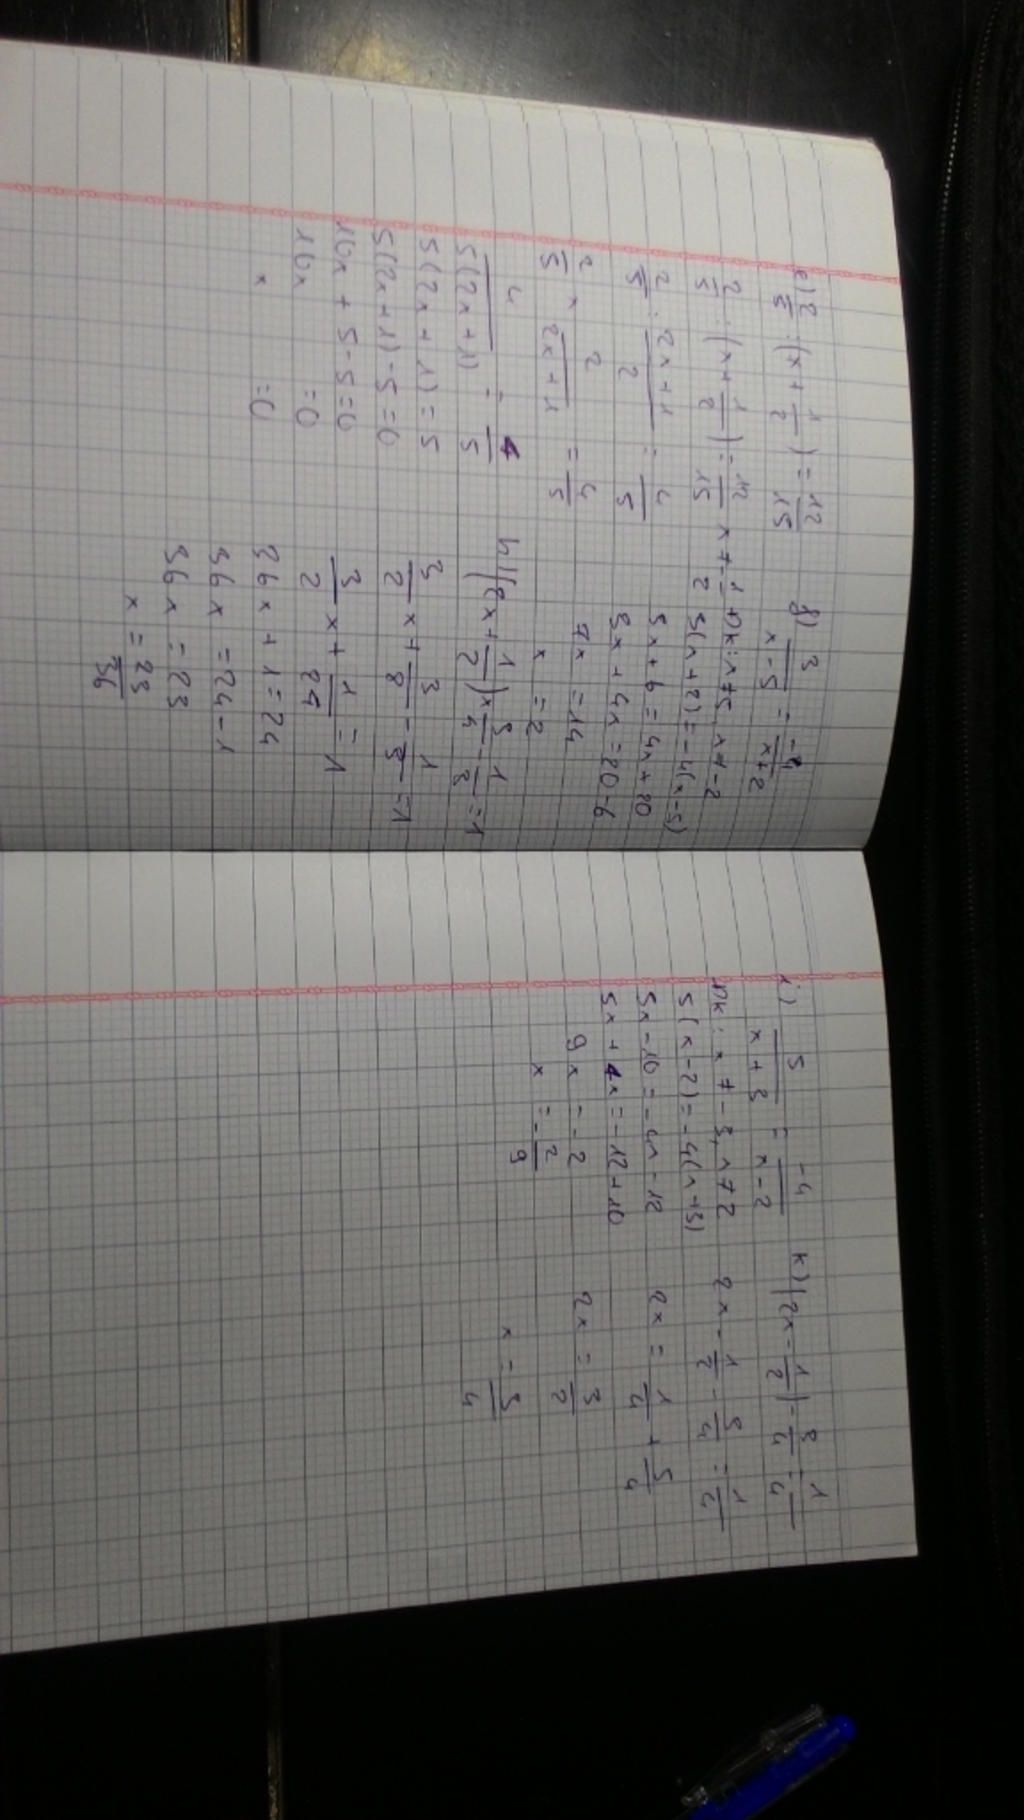 e) 2/5 : (x + 1/2) = 12/15
2/5 : (x + 1/2) = 12/15 x ≠ -1/2
2/5 : 2x+1/2 = 4/5
2/5 x 2/2x+1 = 4/5
4/5(2x+1) = 4/5
5(2x+1) = 5
5(2x+1)-5=0
10x + 5-5=0
10x =0
x =0
g) 3/x-5 = -4/x+2
ĐK: x≠5, x≠-2
3(x+2)=-4(x-5)
3x+6=4x+20
3x+4x=20-6
7x=14
x=2
h) (2x+1/2)x3/4-1/3=1
3/2x+3/8-1/3=1
3/2x+1/24=1
36x+1=24
36x=24-1
36x=23
x=23/36
i) 5/x+3 = -4/x-2
ĐK: x≠-3, x≠2
5(x-2)=-4(x+3)
5x-10=-4x-12
5x+4x=-12+10
9x=-2
x=-2/9
k) |2x-1/2|-3/4=1/4
2x-1/2-3/4=1/4
2x=1/4+5/4
2x=3/2
x=3/4